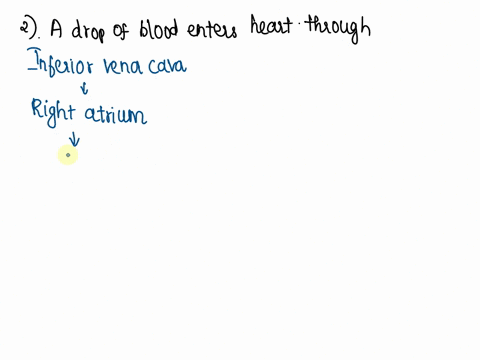 2). A drop of blood enters heart through
Inferior vena cava
↓
Right atrium
↓